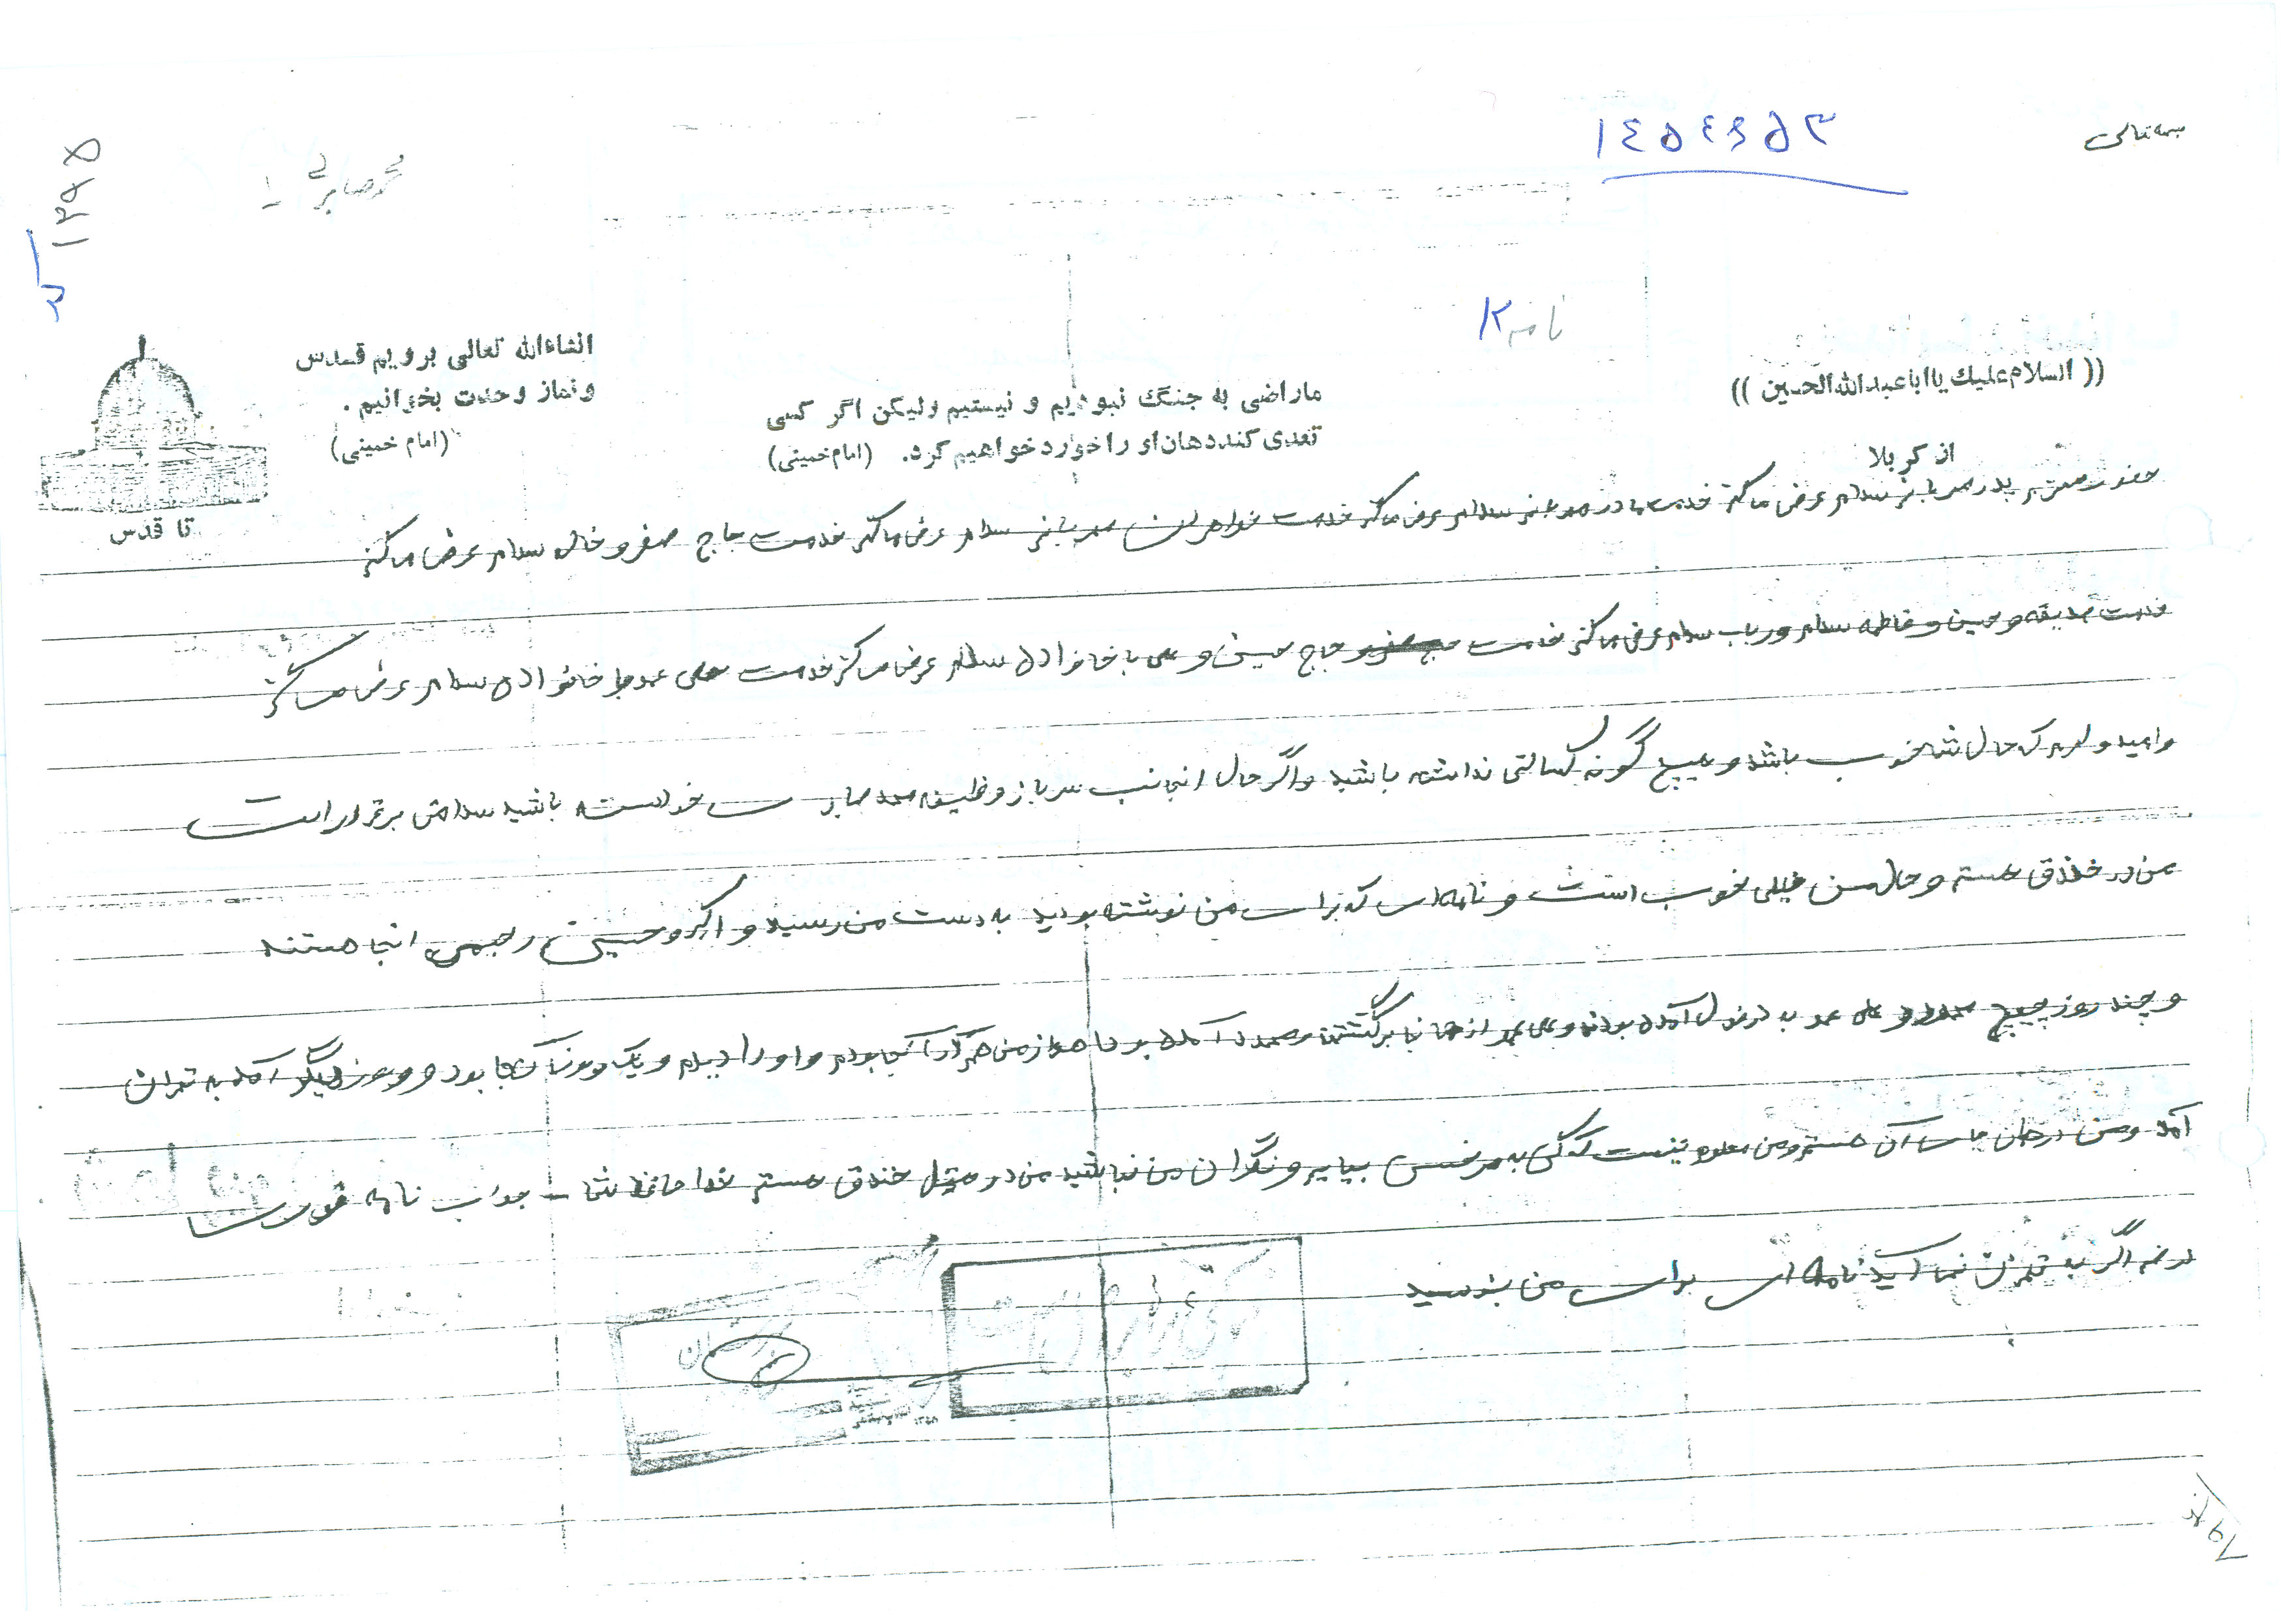 بسمه تعالی
۱٤۵٤۶۵۳
محمد صابر
۱۳۹۵
کد
نامه ۲
((السلام علیك یا ابا عبدالله الحسین))
از کربلا
ما راضی به جنگ نبودیم و نیستیم ولیکن اگر کسی
تعدی کند دهان او را خورد خواهیم کرد. (امام خمینی)
انشاءالله تعالی برویم قدس
و نماز وحدت بخوانیم.
(امام خمینی)
تا قدس
حضور محترم پدر مهربانم سلام عرض می کنم خدمت مادر مهربانم سلام عرض می کنم خدمت خواهران مهربانم سلام عرض می کنم خدمت حاج صفر و خاله سلام عرض می کنم
خدمت صدیقه و حسین و فاطمه سلام و رباب سلام عرض می کنم خدمت حاج حسین و علی با خانواده سلام عرض می کنم خدمت علی عمو با خانواده سلام عرض می کنم
و امیدوارم که حال شما خوب باشد و هیچ گونه کسالتی نداشته باشید و اگر حال اینجانب سرباز وظیفه محمد صابر خواسته باشید سلامتی برقرار است
من در خندق هستم و حال من خیلی خوب است و نامه ای که برای من نوشته بودید به دست من رسید و اکبر و حسین رحیمی اینجا هستند
و چند روز پیش محمود و علی عمو به دزفول آمده بودند و علی عمو از همانجا برگشتند و محمود آمده بود اهواز من هم آنجا بودم و او را دیدم و یک روز آنجا بود و روز دیگر آمد به تهران
آمد و من در همان جای آن هستم و من معلوم نیست که کی به مرخصی بیایم و نگران من نباشید من در خندق هستم خدا حافظ شما - جواب نامه فوری
و نه اگر به تلفن نما آید نامه ای برای من بنویسید